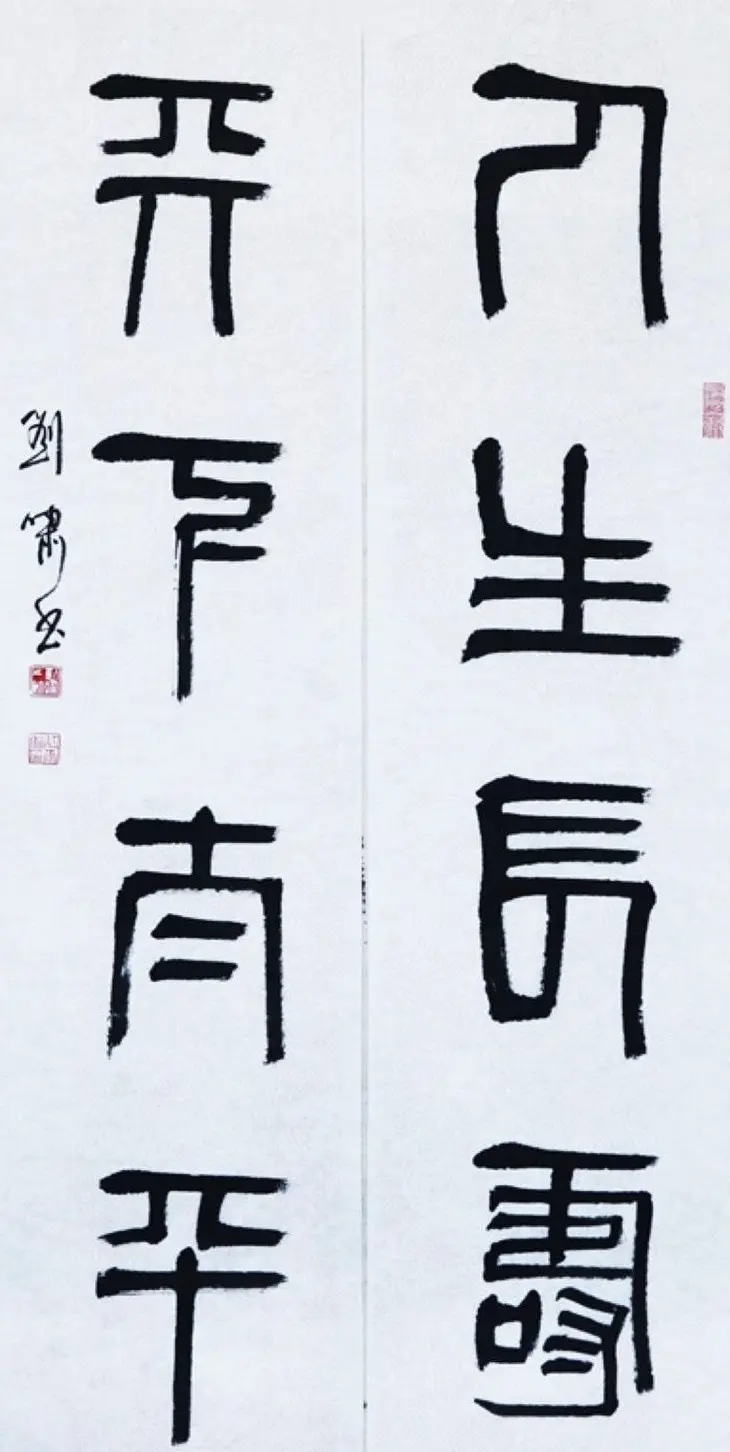 人生長壽
天下太平
劉嘯書